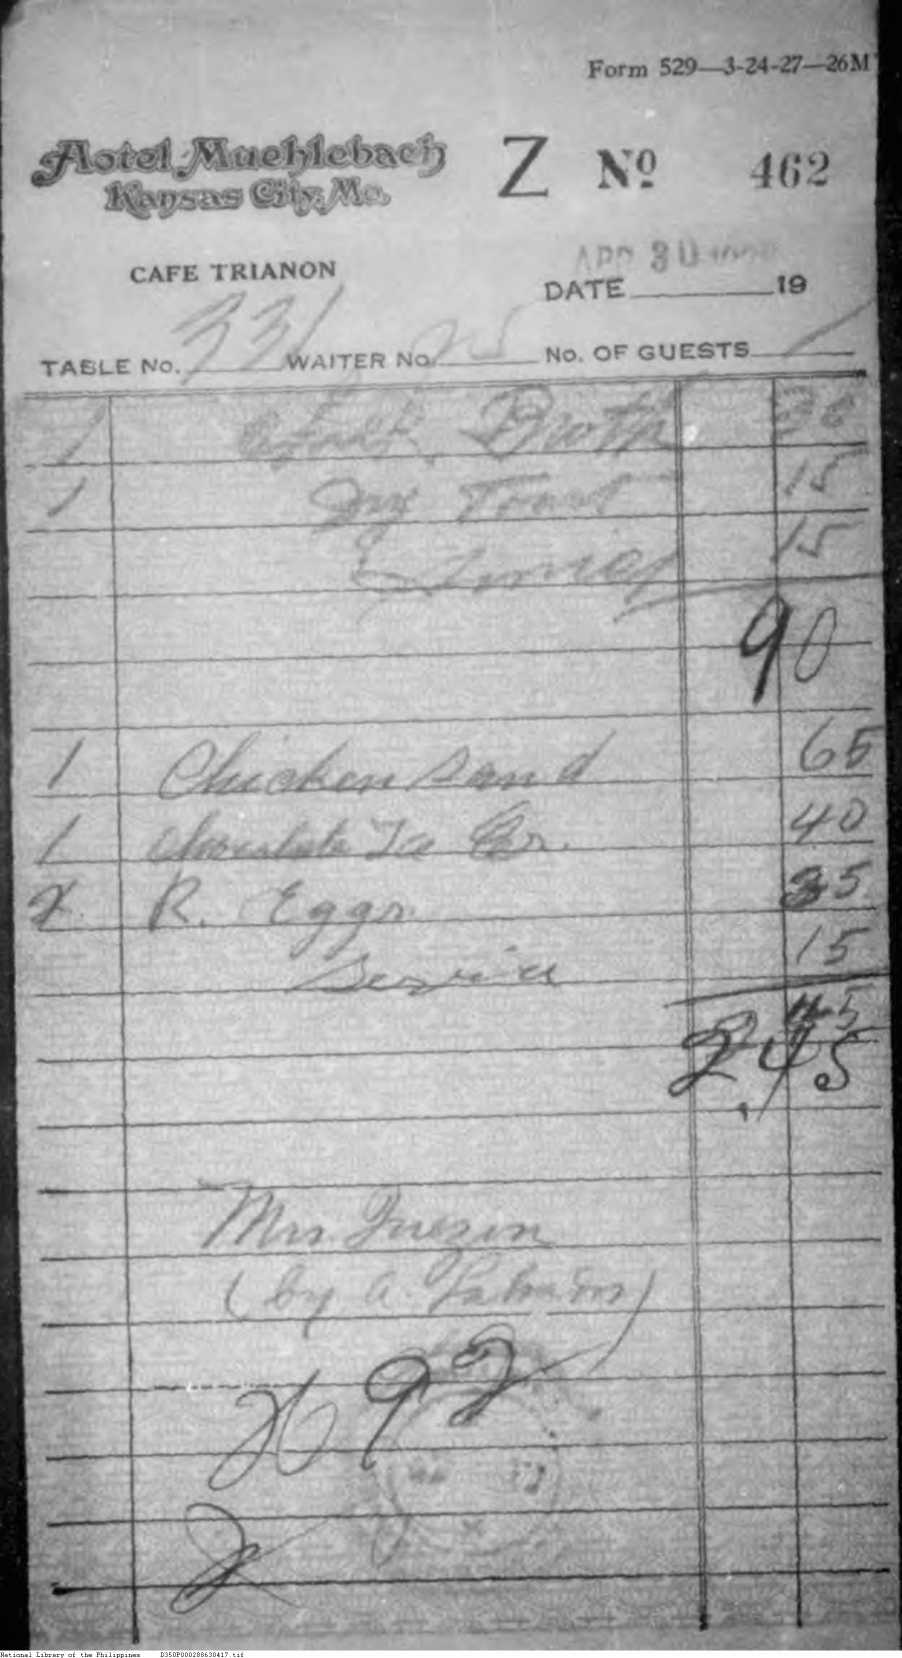 Form 529—3-24-27—26M
Hotel Muehlebach
Kansas City, Mo.
Z No 462
CAFE TRIANON
APR 30
DATE 19
TABLE No. 331 WAITER No. 25 No. OF GUESTS 1
1 Broth
1 Dry Toast 15
Service 15
90
1 Chicken Sand 65
1 Chocolate Ice Cr. 40
2 R. Eggs 35
Service 15
2.45
Mrs. Quezon
(by A.
992
National Library of the Philippines D350P000288630417.tif